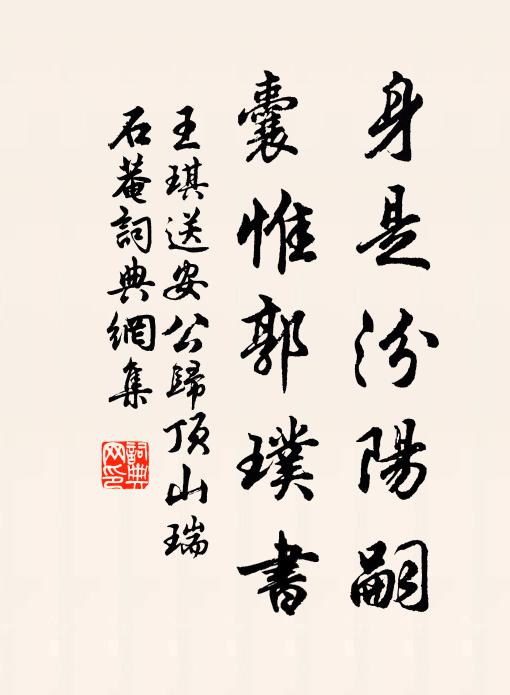 身是汾陽嗣
囊惟郭璞書
王琪送安公歸頂山瑞
石菴詞典網集
詞典网印